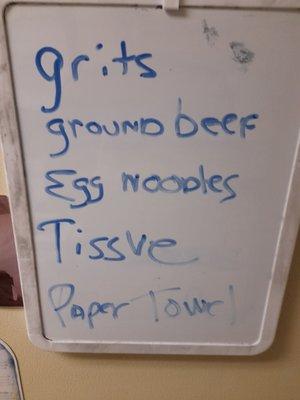 grits
ground beef
Egg noodles
Tissue
Paper Towel